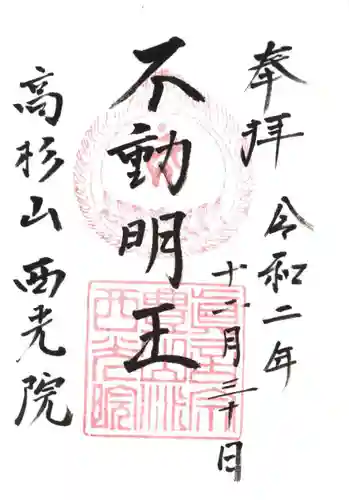 奉拝
令和二年
十一月三十日
不動明王
高杉山西光院